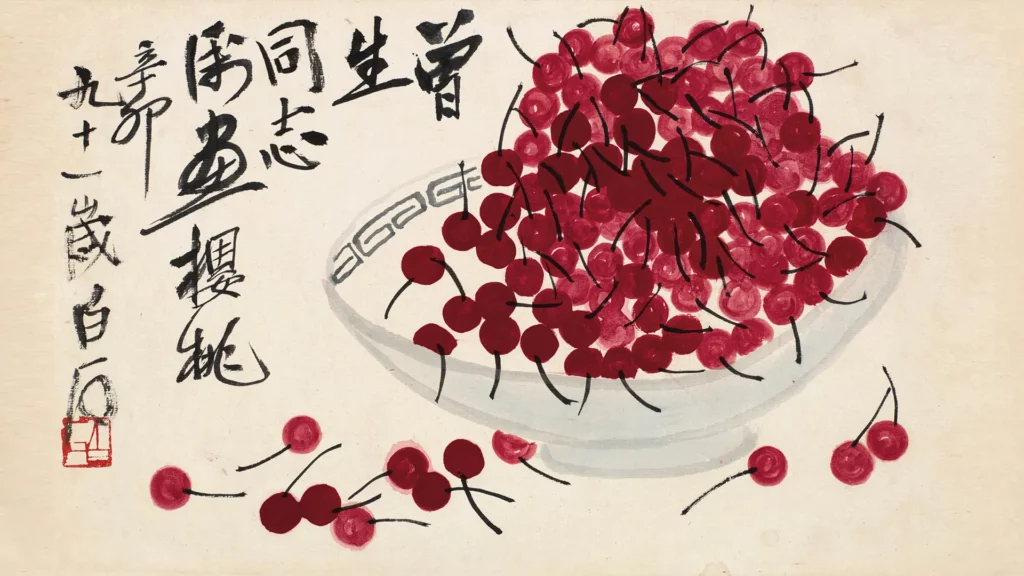 曾生
同志
属畫櫻桃
辛卯
九十一歲白石